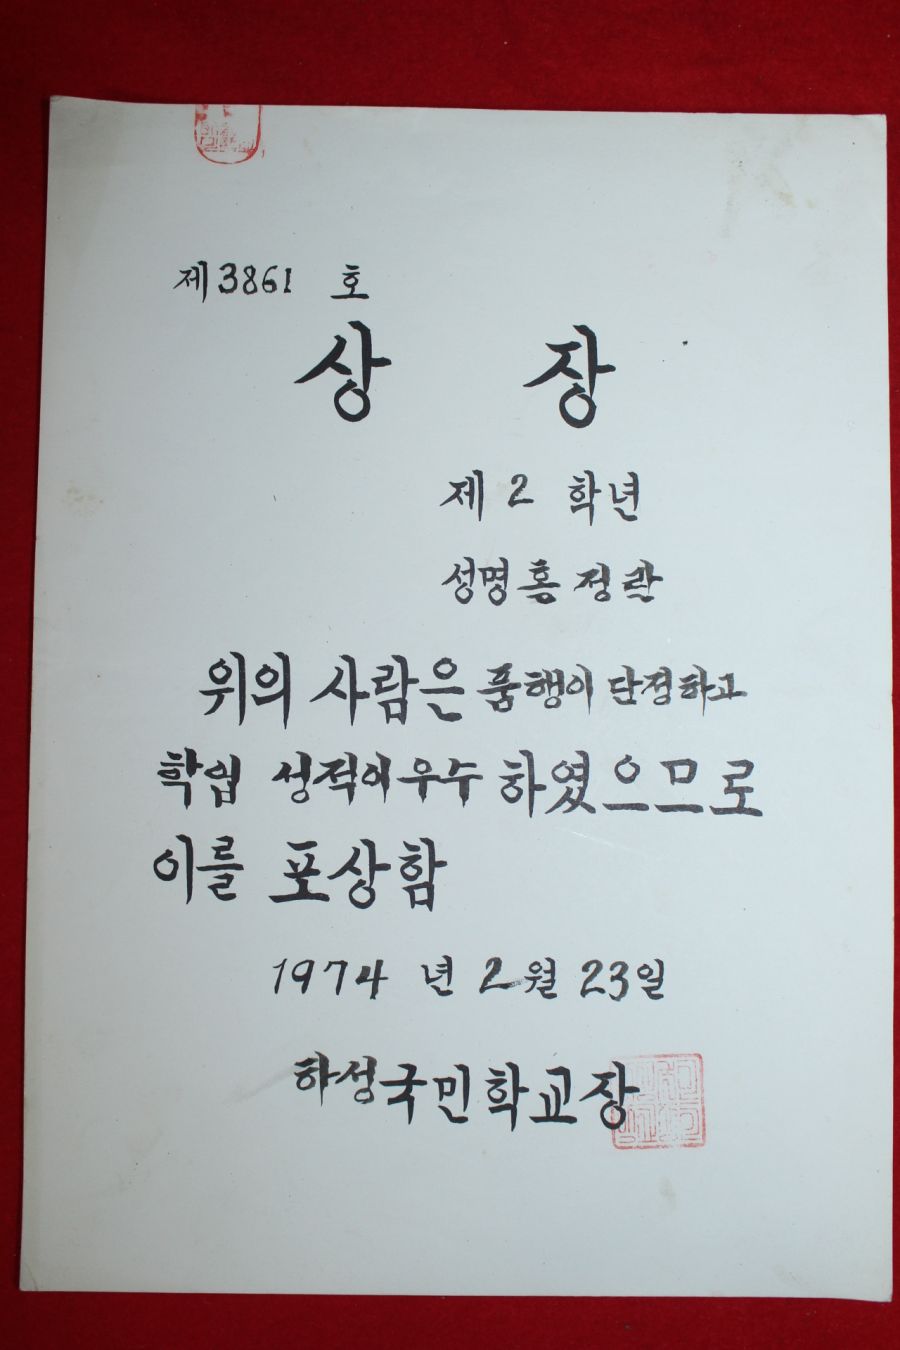 제3861 호
상 장
제 2 학년
성명 홍 정 관
위의 사람은 품행이 단정하고
학업 성적이 우수 하였으므로
이를 포상함
1974 년 2월 23일
하성국민학교장